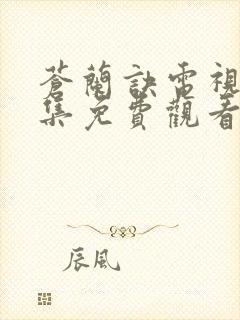 蒼蘭訣電視
集免費觀看
辰風